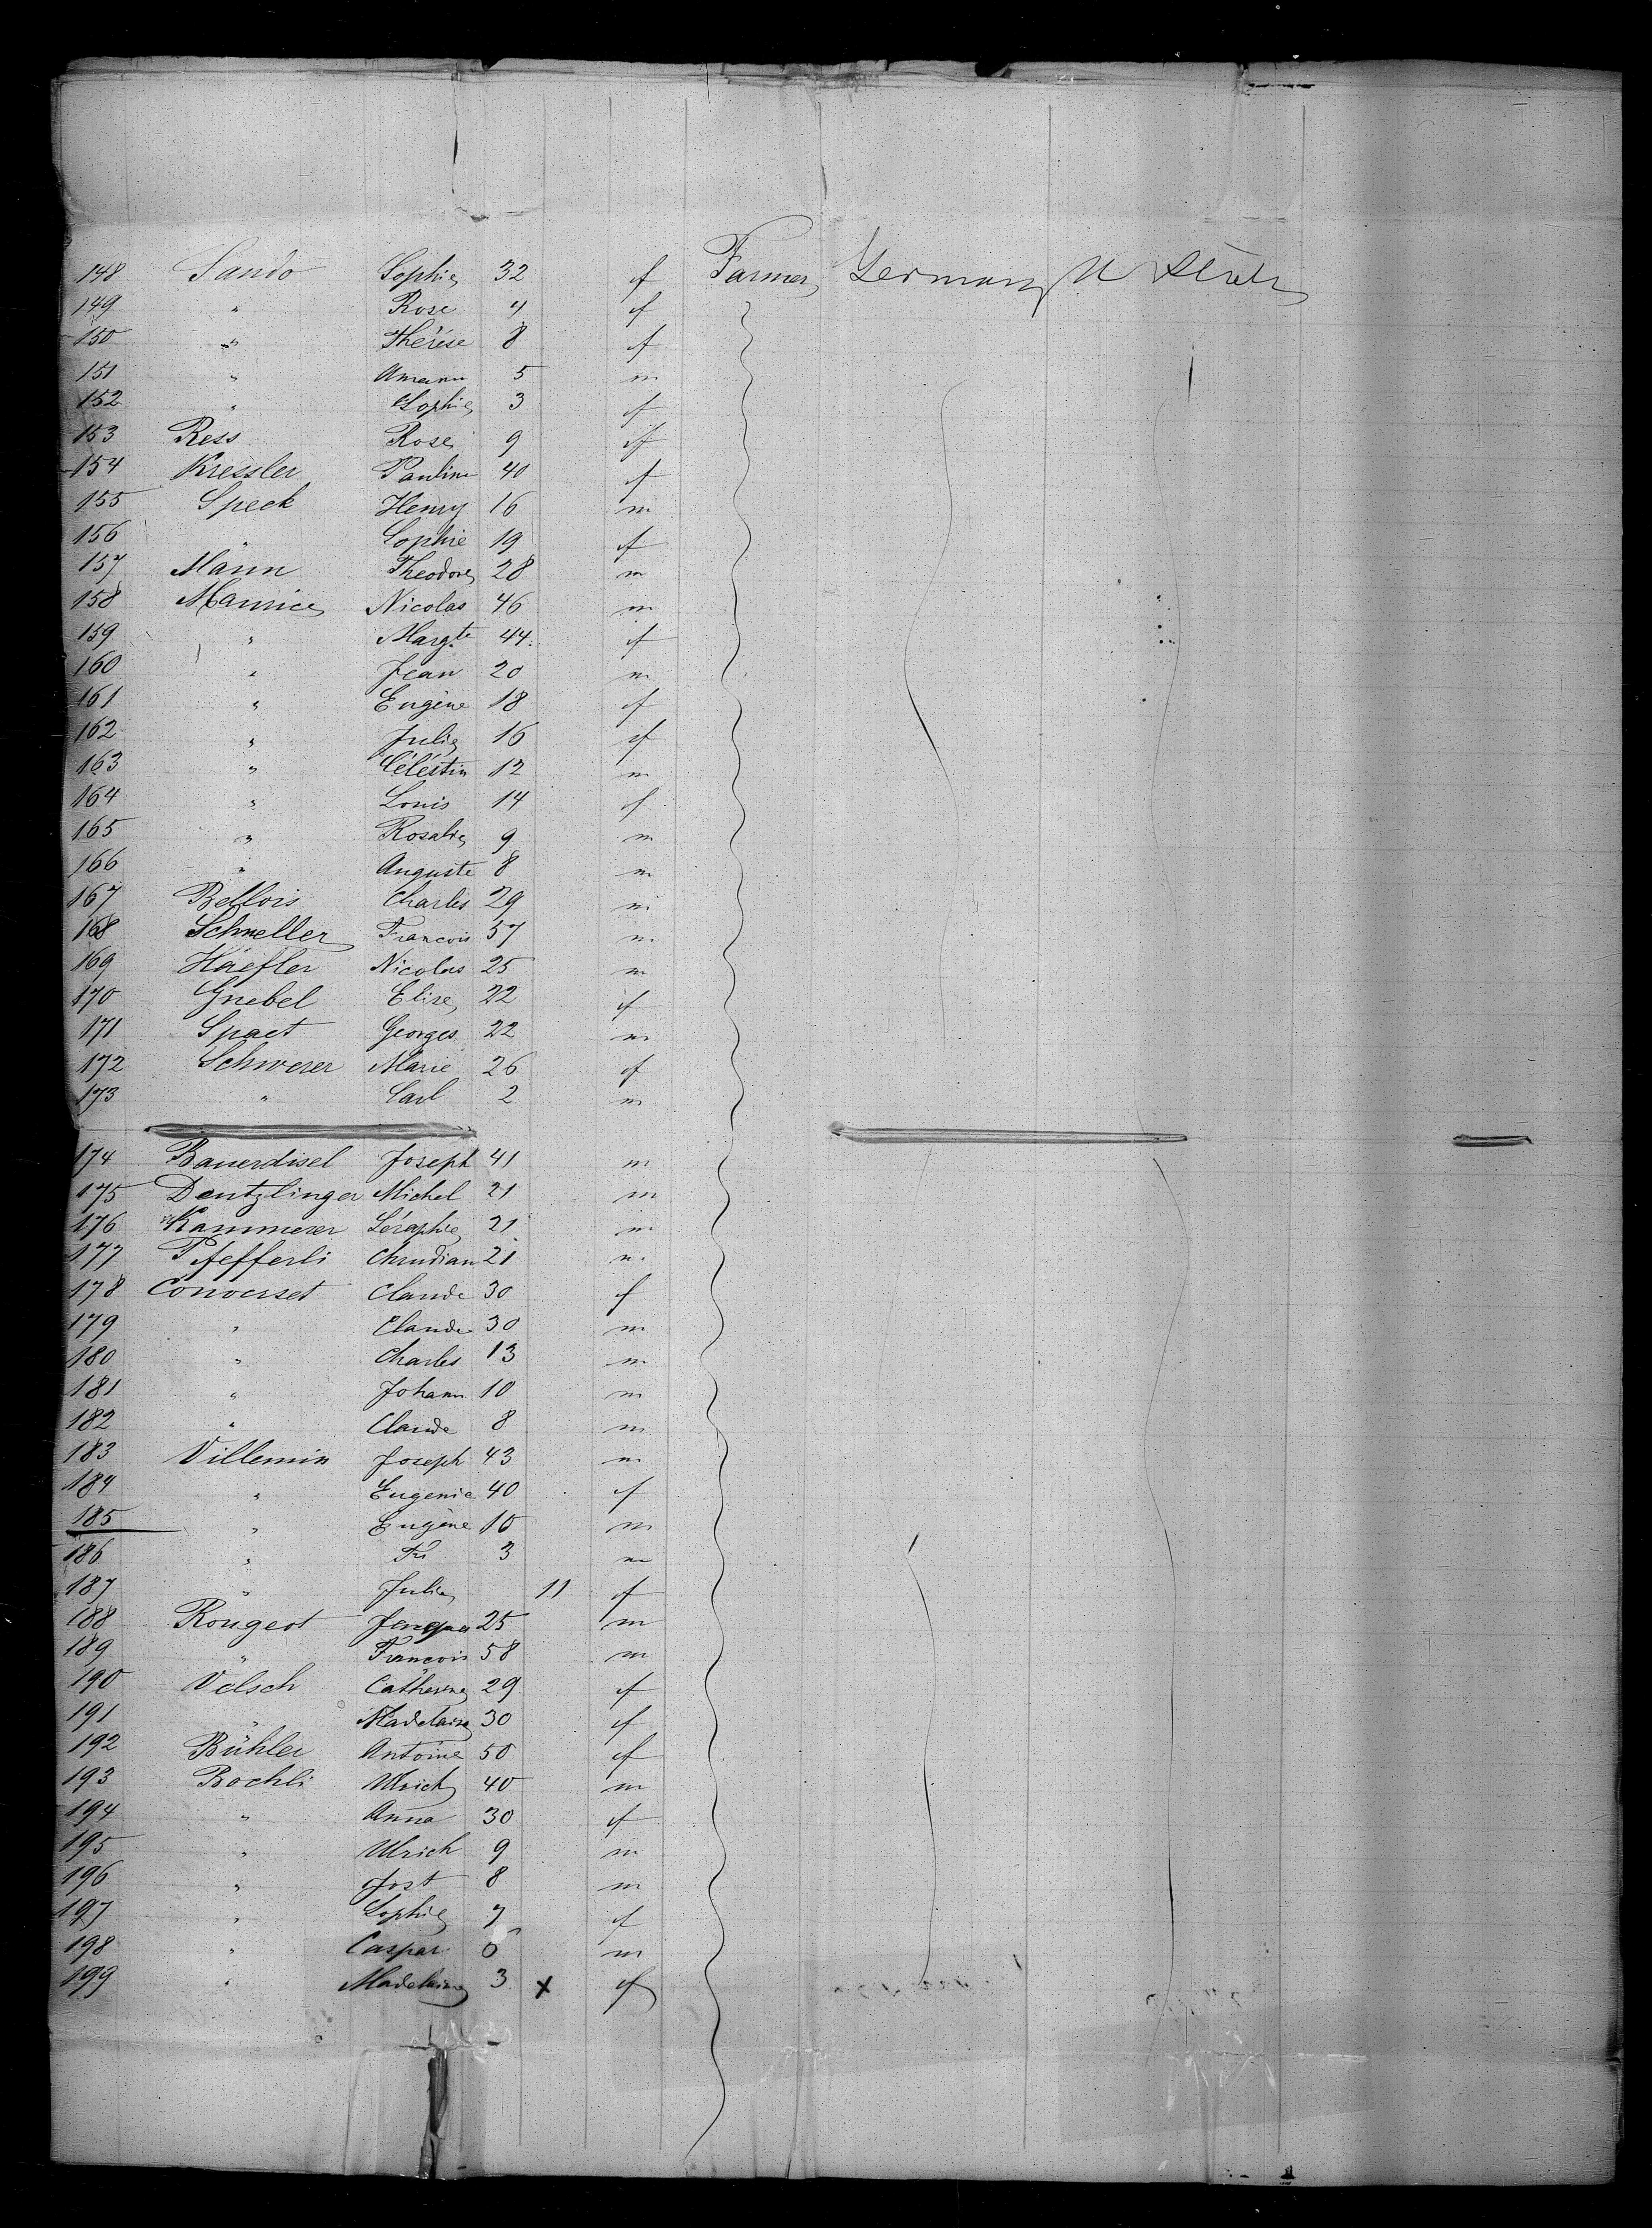 148 Sando Sophie 32 f Farmer Germany U States
149 " Rose 4 f
150 " Thérèse 8 f
151 " Amann 5 m
152 " Sophie 3 f
153 Ress Rose 9 f
154 Kressler Pauline 40 f
155 Speck Henry 16 m
156 " Sophie 19 f
157 Mann Theodore 28 m
158 Maurice Nicolas 46 m
159 " Margte 44 f
160 " Jean 20 m
161 " Eugène 18 f
162 " Julie 16 f
163 " Céléstin 12 m
164 " Louis 14 f
165 " Rosalie 9 m
166 " Auguste 8 m
167 Bellois Charles 29 m
168 Schneller Francois 57 m
169 Haefler Nicolas 25 m
170 Gnebel Elise 22 f
171 Spaet Georges 22 m
172 Schwerer Marie 26 f
173 " Carl 2 m
174 Bauerdisel Joseph 41 m
175 Dentzlinger Michel 21 m
176 Kammerer Séraphie 21 m
177 Pfefferli 21 m
178 Converset Claude 30 f
179 " Claude 30 m
180 " Charles 13 m
181 " Johann 10 m
182 " Claude 8 m
183 Villemin Joseph 43 m
184 " Eugenie 40 f
185 " Eugène 10 m
186 " Frs 3 m
187 " Julie 11 f
188 Rougeot Jacques 25 m
189 " Francois 58 m
190 Velsch Catherine 29 f
191 " Madelaine 30 f
192 Bühler Antoine 50 f
193 Bochli Ulrich 40 m
194 " Anna 30 f
195 " Ulrich 9 m
196 " Jost 8 m
197 " Sophie 7 f
198 " Caspar 6 m
199 " Madelaine 3 x f